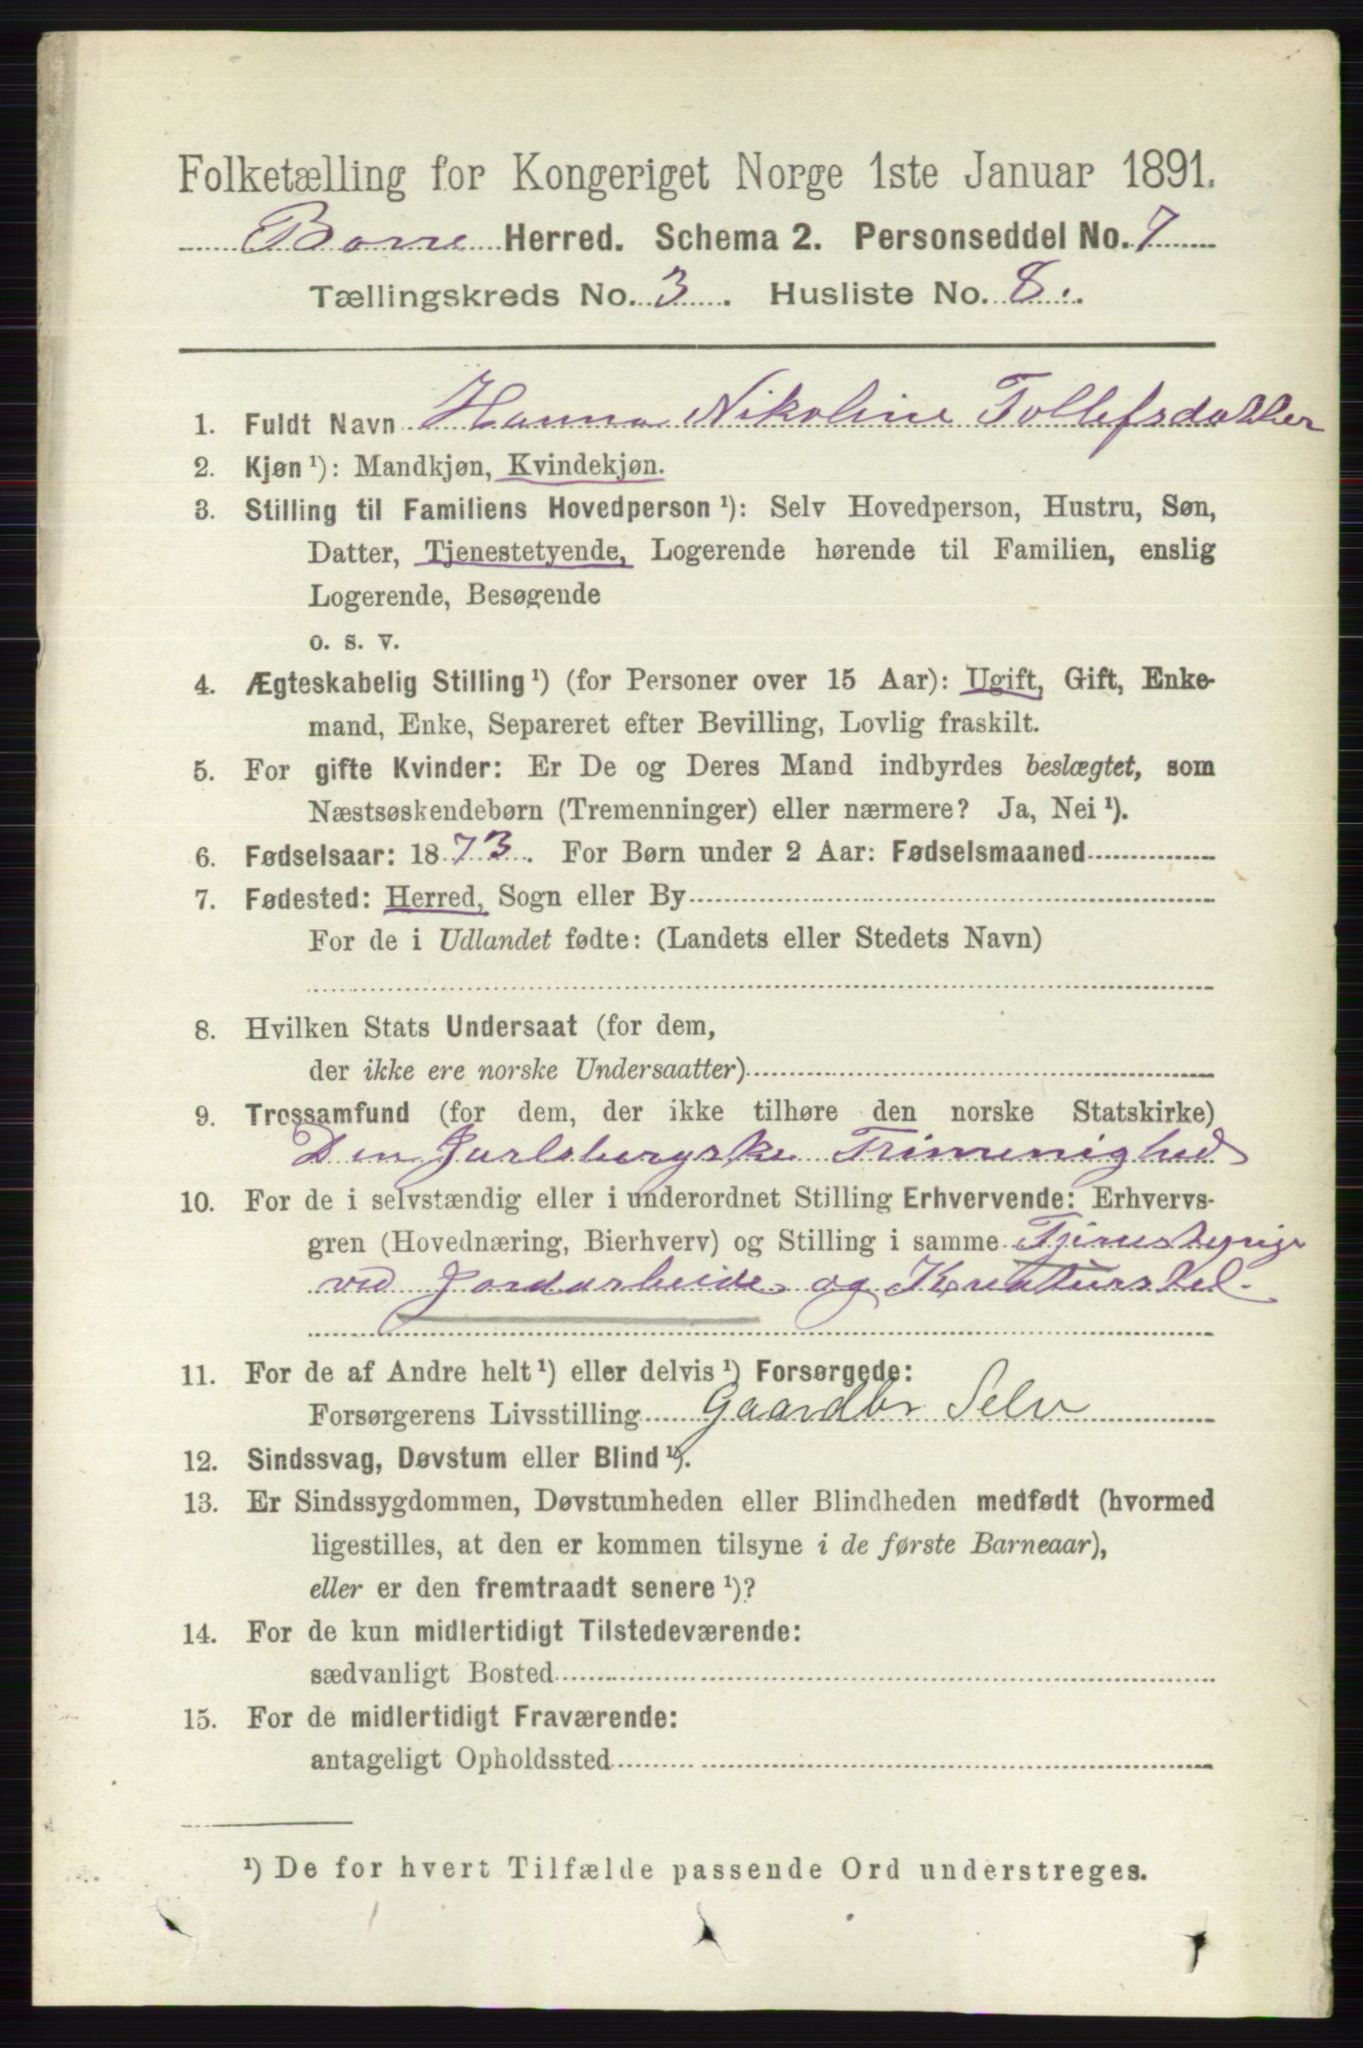 Folketælling for Kongeriget Norge 1ste Januar 1891.
Borre Herred. Schema 2. Personseddel No. 7
Tællingskreds No. 3. Husliste No. 8.
1. Fuldt Navn Hanna Nikoline Tollefsdatter
2. Kjøn ¹): Mandkjøn, Kvindekjøn.
3. Stilling til Familiens Hovedperson ¹): Selv Hovedperson, Hustru, Søn,
Datter, Tjenestetyende, Logerende hørende til Familien, enslig
Logerende, Besøgende
o. s. v.
4. Ægteskabelig Stilling ¹) (for Personer over 15 Aar): Ugift, Gift, Enke-
mand, Enke, Separeret efter Bevilling, Lovlig fraskilt.
5. For gifte Kvinder: Er De og Deres Mand indbyrdes beslægtet, som
Næstsøskendebørn (Tremenninger) eller nærmere? Ja, Nei ¹).
6. Fødselsaar: 1873. For Børn under 2 Aar: Fødselsmaaned
7. Fødested: Herred, Sogn eller By
For de i Udlandet fødte: (Landets eller Stedets Navn)
8. Hvilken Stats Undersaat (for dem,
der ikke ere norske Undersaatter)
9. Trossamfund (for dem, der ikke tilhøre den norske Statskirke)
Den Jarlsbergske Frimenighed
10. For de i selvstændig eller i underordnet Stilling Erhvervende: Erhvervs-
gren (Hovednæring, Bierhverv) og Stilling i samme Tjenestepige
ved Jordarbeide og Kreaturstel.
11. For de af Andre helt ¹) eller delvis ¹) Forsørgede:
Forsørgerens Livsstilling Gaardbr Selv
12. Sindssvag, Døvstum eller Blind ¹).
13. Er Sindssygdommen, Døvstumheden eller Blindheden medfødt (hvormed
ligestilles, at den er kommen tilsyne i de første Barneaar),
eller er den fremtraadt senere ¹)?
14. For de kun midlertidigt Tilstedeværende:
sædvanligt Bosted
15. For de midlertidigt Fraværende:
antageligt Opholdssted
¹) De for hvert Tilfælde passende Ord understreges.